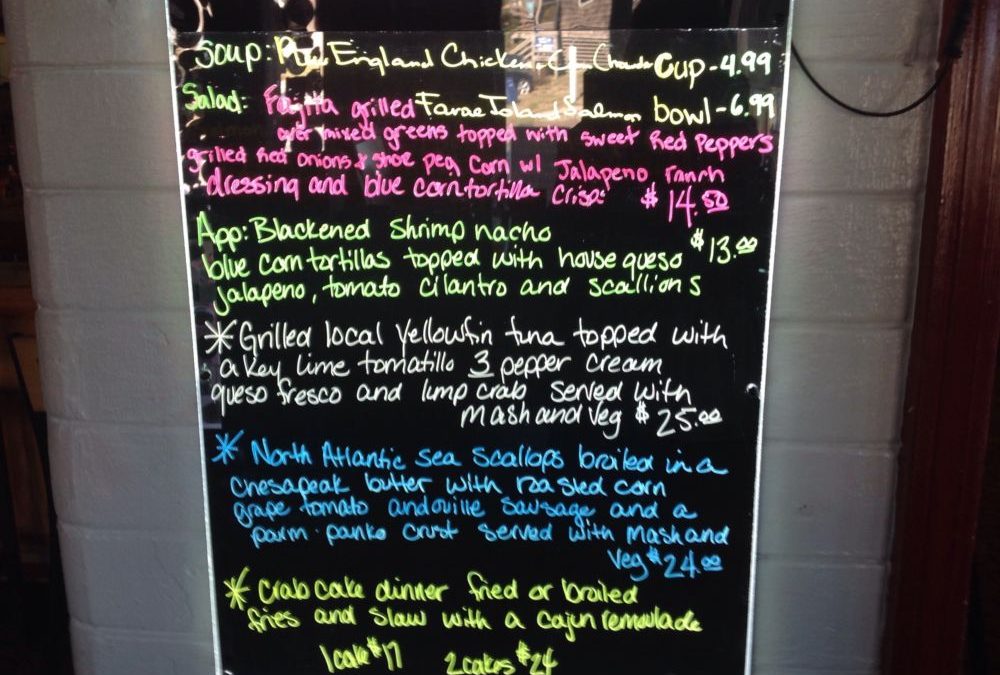 Soup: New England Chicken Corn Chowder Cup - 4.99
Salad: Fajita grilled Faroe Island Salmon bowl - 6.99
over mixed greens topped with sweet Red Peppers
grilled Red onions & shoe peg corn w/ Jalapeno ranch
dressing and blue corn tortilla crisps $14.50
App: Blackened shrimp nacho $13.00
blue corn tortillas topped with house queso
jalapeno, tomato cilantro and scallions
* Grilled local Yellowfin tuna topped with
a key lime tomatillo 3 pepper cream
queso fresco and lump crab served with
mash and veg $25.00
* North Atlantic sea scallops broiled in a
Chesapeak butter with roasted corn
grape tomato andoville sausage and a
parm-panko crust served with mash and
veg $24.00
* Crab cake dinner fried or broiled
fries and slaw with a cajun remoulade
1 cake $17 2 cakes $24